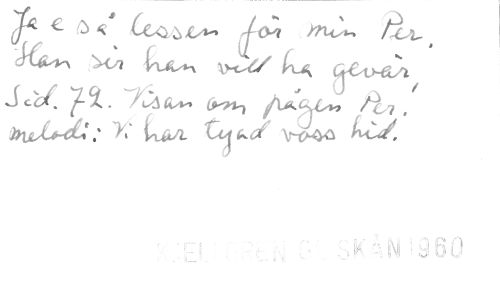 Ja e så lessen för min Per,
Han sir han vill ha gevär,
Sid. 72. Visan om pågen Per.
melodi: Vi har tyad voss hid.
KJELLGREN GL SKÅN 1960